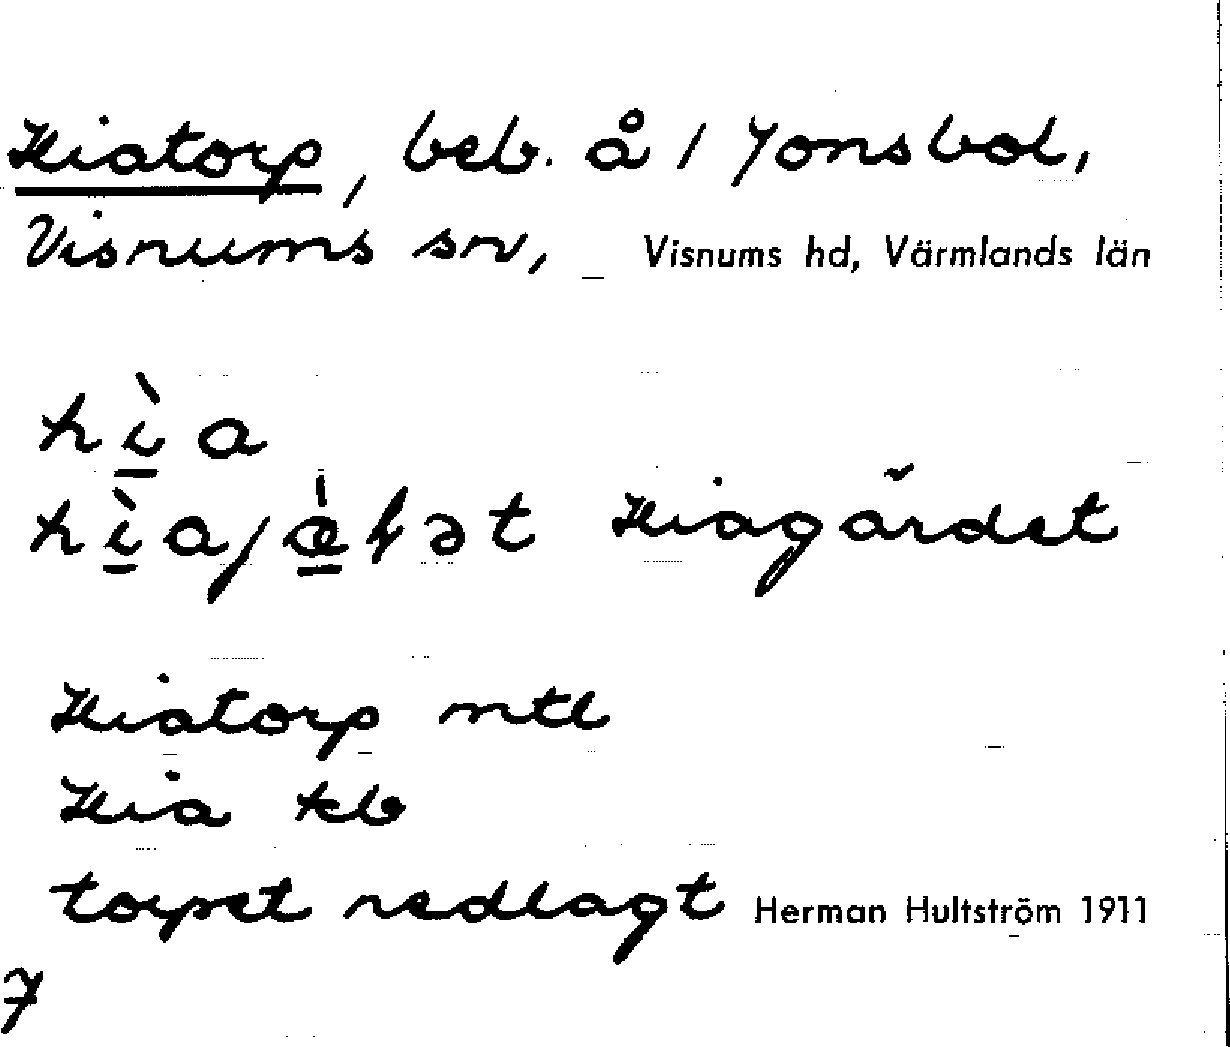 Hiatorp, beb. å 1 Jonsbol,
Visnums sn, Visnums hd, Värmlands län
hìa
hìajæ̀ɽət Hiagärdet
Hiatorp mtl
Hia kb
torpet nedlagt Herman Hultström 1911
7